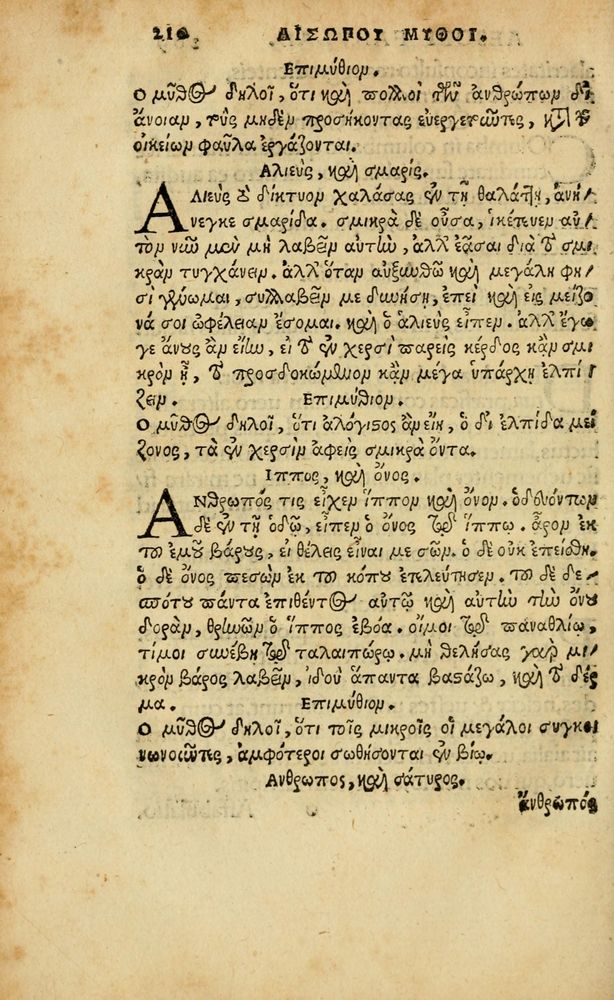 210 ΑΙΣΩΠΟΥ ΜΥΘΟΙ.
Επιμύθιον.
Ο μῦθος δηλοῖ, ὅτι καὶ πολλοὶ τῶν ἀνθρώπων δι'
ἄνοιαν, τοὺς μηδὲν προσήκοντας ευεργετοῦντες, κατὰ τῶν
οικείων φαῦλα ἐργάζονται.
Αλιεὺς, καὶ σμαρίς.
ΑΛΙΕΥΣ τὸ δίκτυον χαλάσας ἐν τῇ θαλάττῃ, ἀνή-
νεγκε σμαρίδα. σμικρὰ δὲ οὖσα, ἱκέτευεν αὐ-
τὸν νῦν μὲν μὴ λαβεῖν αὐτὴν, ἀλλ' ἐᾶσαι διὰ τὸ σμι-
κρὰν τυγχάνειν. ἀλλ' ὅταν αυξηνθῶ καὶ μεγάλη φη-
σὶ γένωμαι, συλλαβεῖν με δυνήσῃ, ἐπεὶ καὶ εἰς μείζο-
νά σοι ὠφέλειαν ἔσομαι. καὶ ὁ ἁλιεὺς εἶπεν. ἀλλ' ἔγω-
γε ἄνους ἂν εἴην, ει τὸ ἐν χερσὶ παρεὶς κέρδος κἂν σμι-
κρὸν ᾖ, τὸ προσδοκώμενον κἂν μέγα ὑπάρχῃ ἐλπί-
ζειν. Επιμύθιον.
Ο μῦθος δηλοῖ, ὅτι ἀλόγιστος ἂν εἴη, ὁ δι' ελπίδα μεί-
ζονος, τὰ ἐν χερσὶν ἀφεὶς σμικρὰ ὄντα.
Ιππος, καὶ ὄνος.
ΑΝθρωπός τις εἶχεν ἵππον καὶ ὄνον. ὁδευόντων
δὲ ἐν τῇ ὁδῷ, εἶπεν ὁ ὄνος τῷ ἵππῳ. ἆρον ἐκ
τοῦ ἐμοῦ βάρους, ει θέλεις εἶναι με σῶν. ὁ δὲ οὐκ ἐπείσθη.
ὁ δὲ ὄνος πεσὼν ἐκ τοῦ κόπου ετελεύτησεν. τοῦ δὲ δε-
σπότου πάντα ἐπιθέντος αὐτῷ καὶ αὐτὴν τὴν ὄνου
δορὰν, θρηνῶν ὁ ἵππος ἐβόα. οἴμοι τῷ παναθλίῳ,
τίμοι συνέβη τῷ ταλαιπώρῳ. μὴ θελήσας γὰρ μι-
κρὸν βάρος λαβεῖν, ιδοὺ ἅπαντα βαστάζω, καὶ τὸ δέρ-
μα. Επιμύθιον.
Ο μῦθος δηλοῖ, ὅτι τοῖς μικροῖς οἱ μεγάλοι συγκοι-
νωνοῦντες, ἀμφότεροι σωθήσονται ἐν βίῳ.
Ανθρωπος, καὶ σάτυρος.
ἄνθρωπός